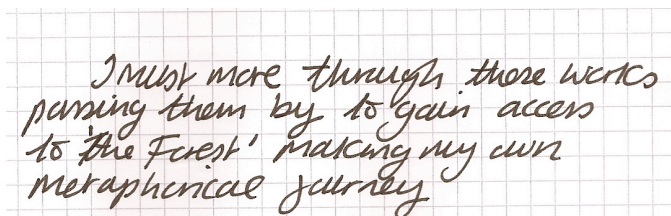 I must move through these works
passing them by to gain access
to 'the Forest' making my own
metaphorical journey